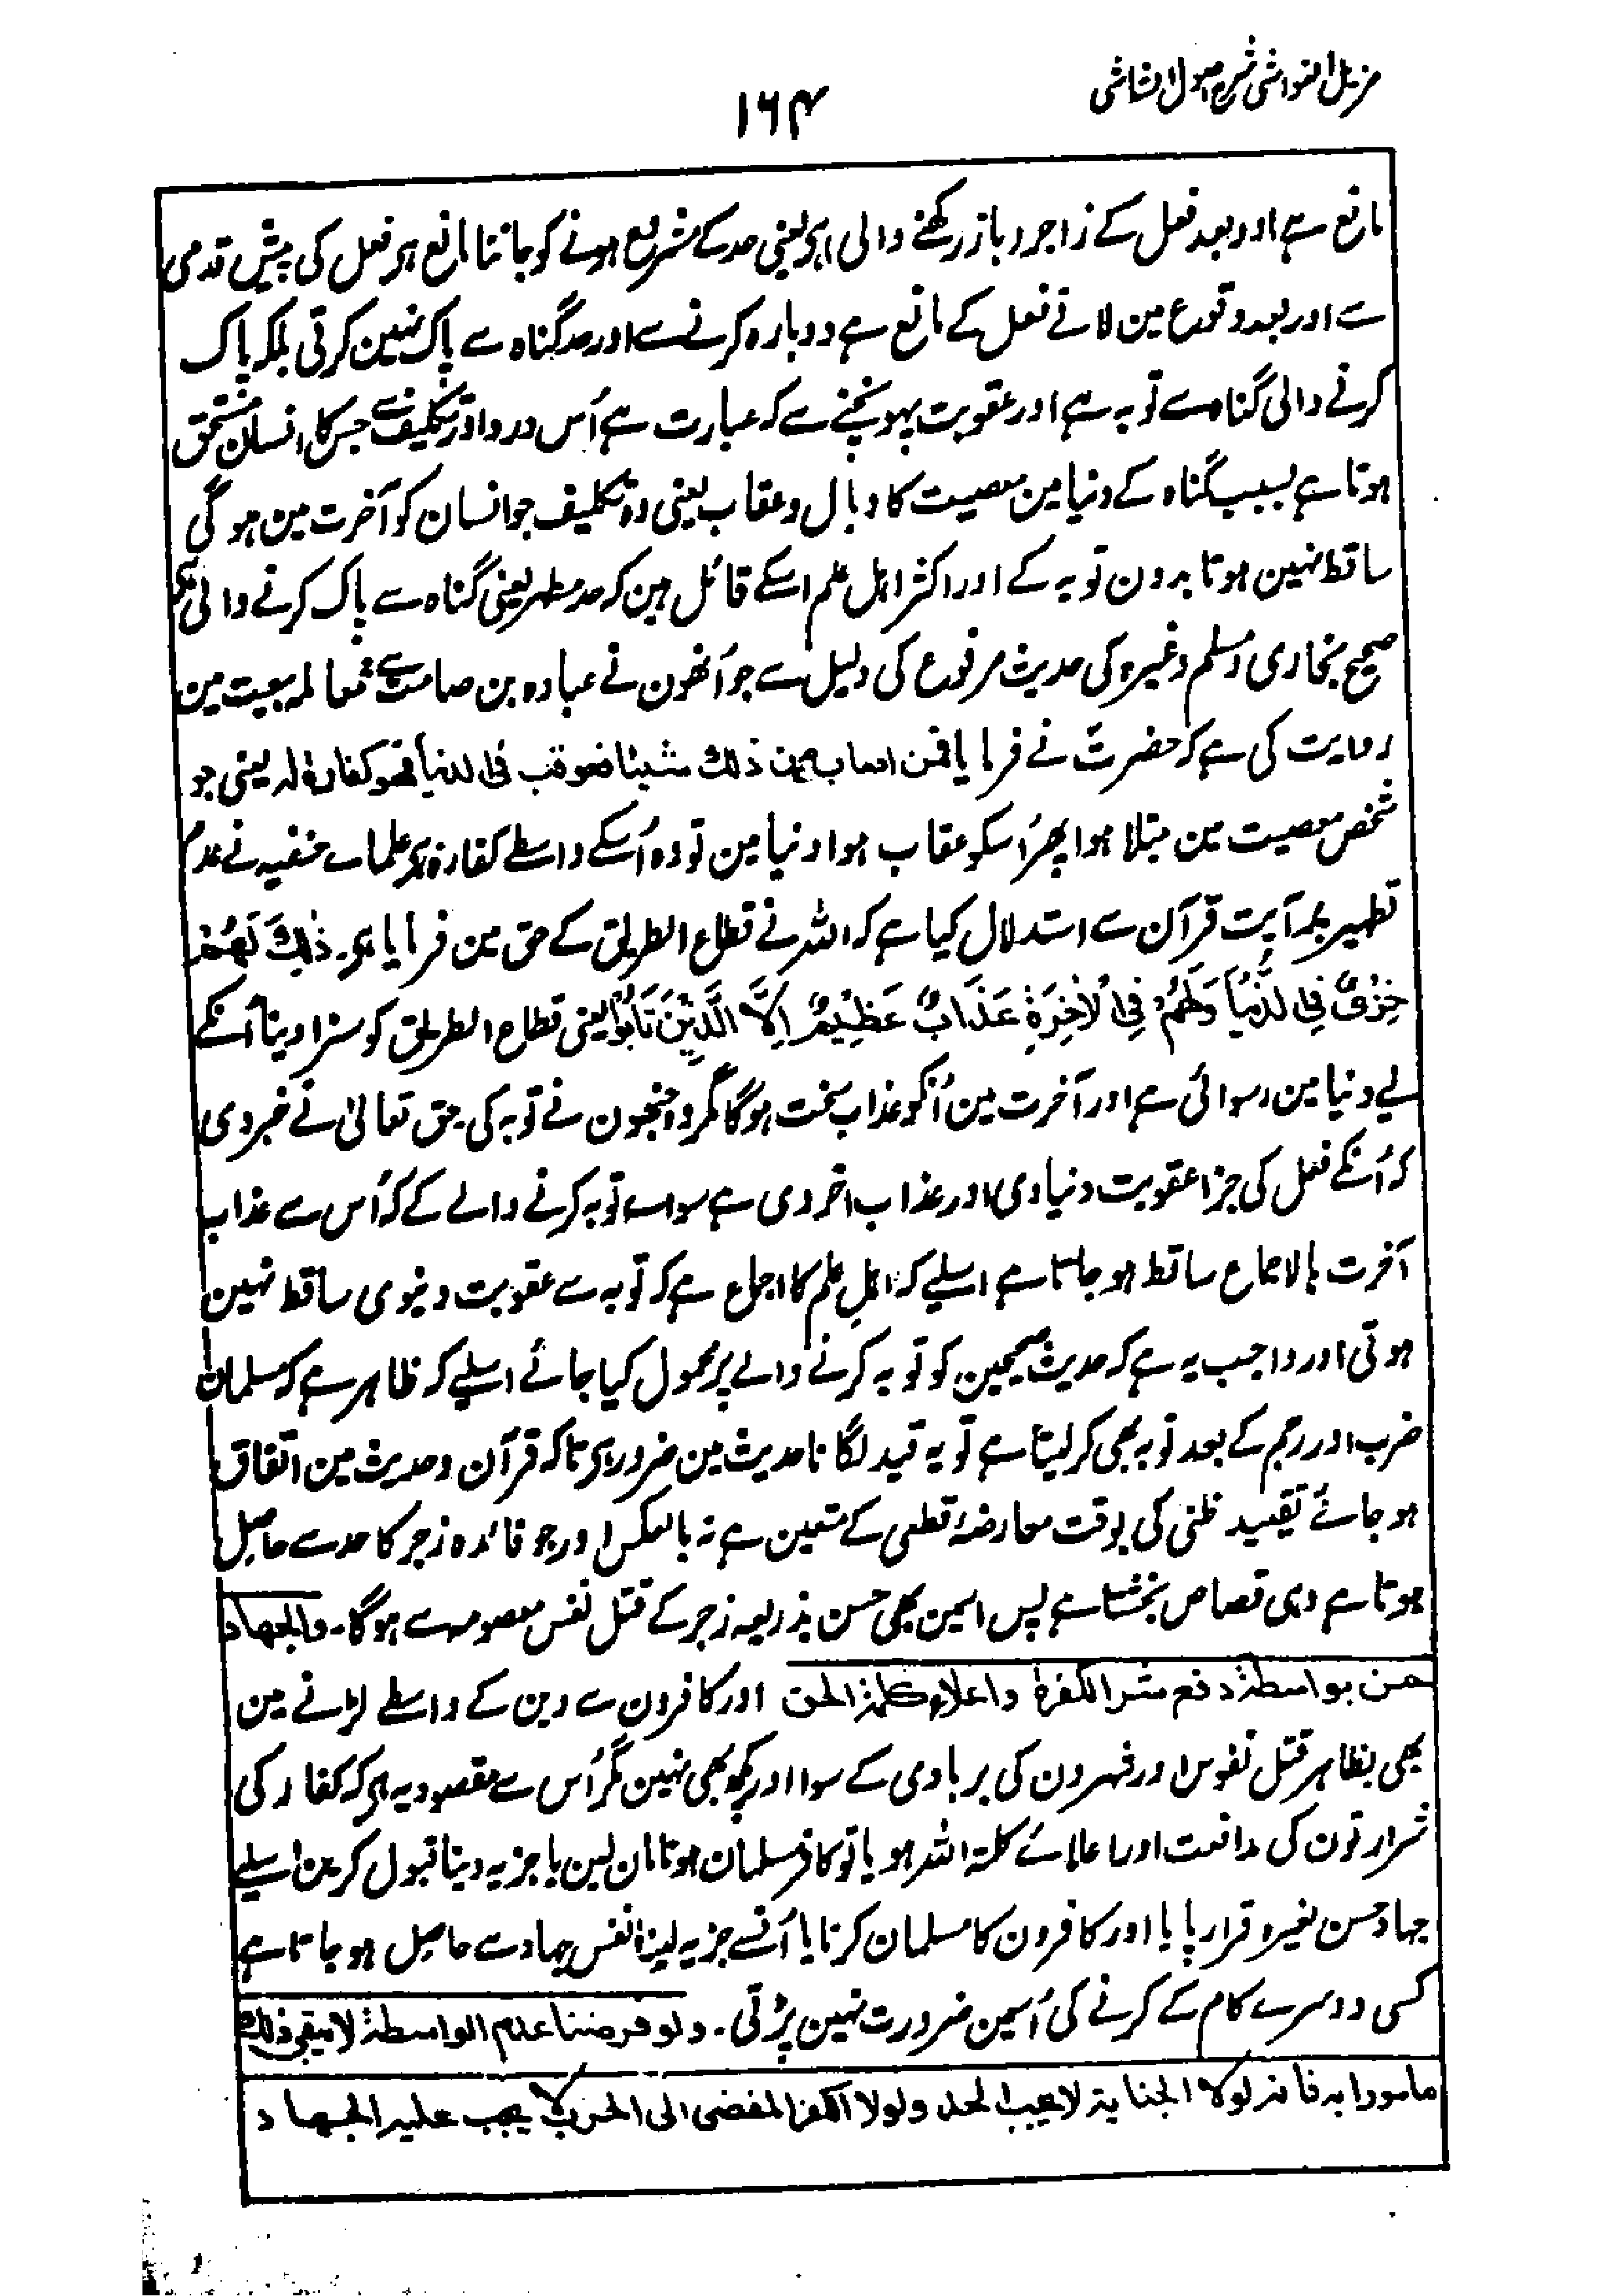 مزیل الغواشی شرح اصول الشاشی
۱۶۴
مانع ہے اور بعد فعل کے زاجر و باز رکھنے والی ہی یعنی حد کے مشروع ہونے کو جاننا مانع ہر فعل کی پیش قدمی
سے اور بعد وقوع مین لانے فعل کے مانع ہے دوبارہ کرنے سے اور حد گناہ سے پاک نہین کرتی بلکہ پاک
کرنے والی گناہ سے توبہ ہے اور عقوبت پہونچنے سے کہ عبارت ہے اُس درد اور تکلیف سے جس کا انسان مستحق
ہوتا ہے بسبب گناہ کے دنیا مین معصیت کا وبال و عقاب یعنی وہ تکلیف جو انسان کو آخرت مین ہوگی
ساقط نہین ہوتا بدون توبہ کے اور اکثر اہل علم اسکے قائل ہین کہ حد مطہر یعنی گناہ سے پاک کرنے والی ہی
صحیح بخاری و مسلم وغیرہ کی حدیث مرفوع کی دلیل سے جو اُنھون نے عبادہ بن صامت سے معاملہ بیعیت مین
روایت کی ہے کہ حضرت نے فرمایا فمن اصاب من ذلك شيئا فعوقب فی الدنیا فهو كفارة له یعنی جو
شخص معصیت مین مبتلا ہوا پھر اُسکو عقاب ہوا دنیا مین تو وہ اُسکے واسطے کفارہ ہی علماے حنفیہ نے عدم
تطہیر پر آیت قرآن سے استدلال کیا ہے کہ اللہ نے قطاع الطریق کے حق مین فرمایا ہی۔ ذٰلِكَ لَهُمْ
خِزْىٌ فِى الدُّنْيَا وَلَهُمْ فِى الْاٰخِرَةِ عَذَابٌ عَظِيْمٌ اِلَّا الَّذِيْنَ تَابُوْا یعنی قطاع الطریق کو سزا دینا اُنکے
لیے دنیا مین رسوائی ہے اور آخرت مین اُنکو عذاب سخت ہوگا مگر وہ جنھون نے توبہ کی حق تعالیٰ نے خبر دی
کہ اُنکے فعل کی جزا عقوبت دنیاوی اور عذاب اخروی ہے سواے توبہ کرنے والے کے کہ اُس سے عذاب
آخرت بالاجماع ساقط ہو جاتا ہے اسلیے کہ اہل علم کا اجماع ہے کہ توبہ سے عقوبت دنیوی ساقط نہین
ہوتی اور واجب یہ ہے کہ حدیث صحیحین کو توبہ کرنے والے پر محمول کیا جائے اسلیے کہ ظاہر ہے کہ مسلمان
ضرب اور رجم کے بعد توبہ بھی کر لیتا ہے تو یہ قید لگانا حدیث مین ضرور ہی تاکہ قرآن و حدیث مین اتفاق
ہو جائے تقیید ظنی کی بوقت معارضۂ قطعی کے متعین ہے نہ بالعکس اور جو فائدہ زجر کا حد سے حاصل
ہوتا ہے وہی قصاص بخشتا ہے پس اسمین بھی حسن بذریعہ زجر کے قتل نفس معصومہ سے ہوگا۔ والجهاد
حسن بواسطة دفع شر الكفرة واعلاء كلمة الحق اور کافرون سے دین کے واسطے لڑنے مین
بھی بظاہر قتل نفوس اور شہرون کی بربادی کے سوا اور کچھ بھی نہین مگر اُس سے مقصود یہ ہی کہ کفار کی
شرارتون کی مدافعت اور اعلائے کلمۃ اللہ ہو یا تو کافر مسلمان ہونا مان لین یا جزیہ دینا قبول کرین اسلیے
جہاد حسن لغیرہ قرار پایا اور کافرون کا مسلمان کرنا یا اُنسے جزیہ لینا نفس جہاد سے حاصل ہو جاتا ہے
کسی دوسرے کام کے کرنے کی اُسمین ضرورت نہین پڑتی۔ ولو فرضنا عدم الواسطة لا يبقى ذلك
مامورا به فانه لولا الجناية لا يجب الحد ولولا الكفر المفضى الى الحرب لا يجب عليه الجهاد